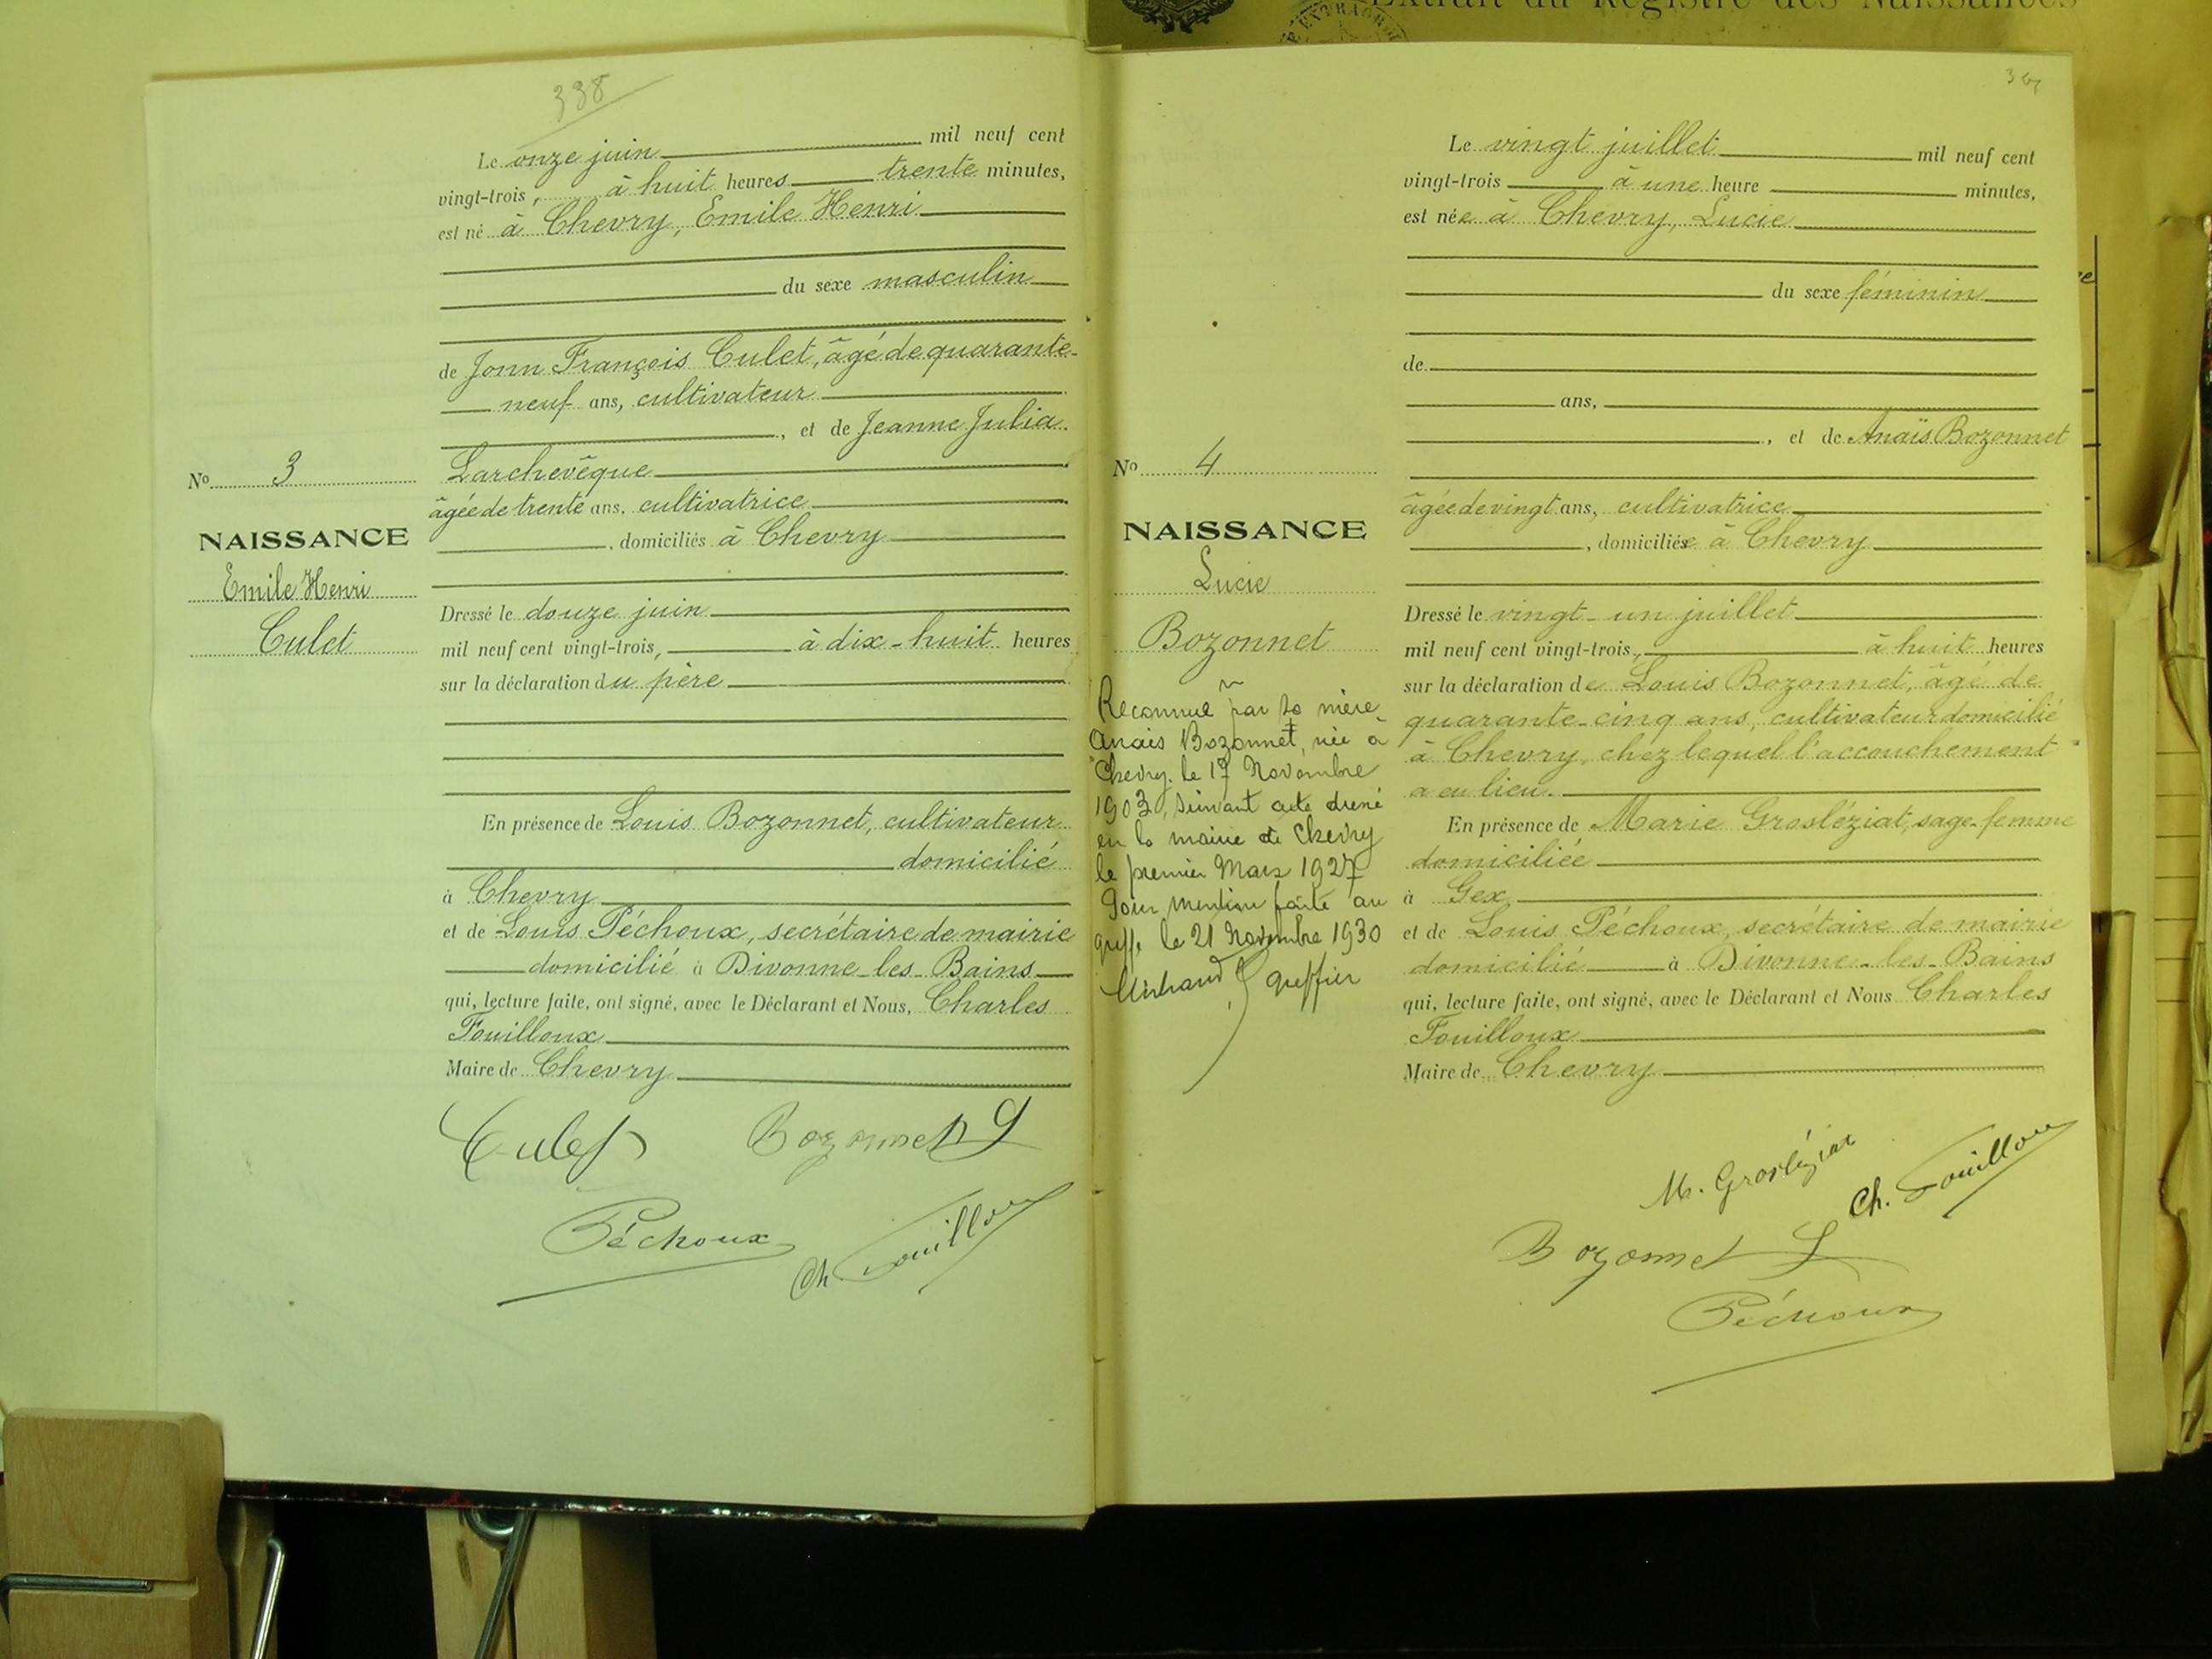 Extrait du Registre des Naissances
338
Le onze juin mil neuf cent
vingt-trois, à huit heures trente minutes,
est né à Chevry, Emile Henri
du sexe masculin
de Jonn François Culet, âgé de quarante-
neuf ans, cultivateur
, et de Jeanne Julia
Larchevêque
âgée de trente ans, cultivatrice
, domiciliés à Chevry
No 3
NAISSANCE
Emile Henri
Culet
Dressé le douze juin
mil neuf cent vingt-trois, à dix-huit heures
sur la déclaration du père
En présence de Louis Bozonnet, cultivateur
domicilié
à Chevry
et de Louis Péchoux, secrétaire de mairie
domicilié à Divonne-les-Bains
qui, lecture faite, ont signé, avec le Déclarant et Nous, Charles
Fouilloux
Maire de Chevry
Culet Bozonnet L
Péchoux
Ch. Fouilloux
Le vingt juillet mil neuf cent
vingt-trois à une heure minutes,
est née à Chevry, Lucie
du sexe féminin
de
ans,
, et de Anaïs Bozonnet
âgée de vingt ans, cultivatrice
, domiciliée à Chevry
No 4
NAISSANCE
Lucie
Bozonnet
Reconnue par sa mère
Anaïs Bozonnet, née à
Chevry le 17 Novembre
1902, suivant acte dressé
en la mairie de Chevry
le premier Mars 1927
Pour mention faite au
greffe le 21 Novembre 1930
greffier
Dressé le vingt-un juillet
mil neuf cent vingt-trois, à huit heures
sur la déclaration de Louis Bozonnet, âgé de
quarante-cinq ans, cultivateur domicilié
à Chevry, chez lequel l'accouchement
a eu lieu.
En présence de Marie Grosléziat, sage-femme
domiciliée
à Gex
et de Louis Péchoux, secrétaire de mairie
domicilié à Divonne-les-Bains
qui, lecture faite, ont signé, avec le Déclarant et Nous Charles
Fouilloux
Maire de Chevry
M. Grosléziat
Ch. Fouilloux
Bozonnet L
Péchoux